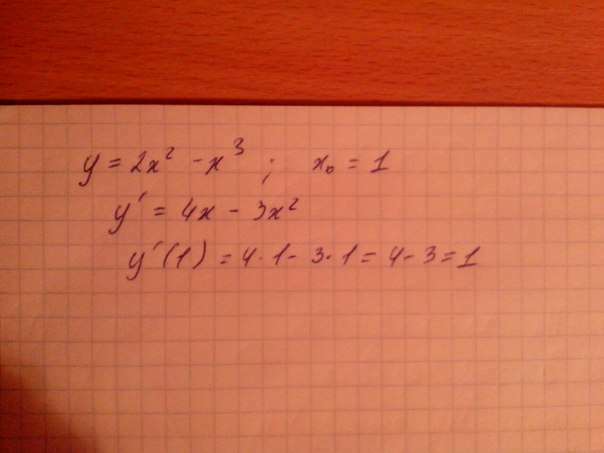 y = 2x² - x³ ; x₀ = 1
y' = 4x - 3x²
y'(1) = 4·1 - 3·1 = 4 - 3 = 1